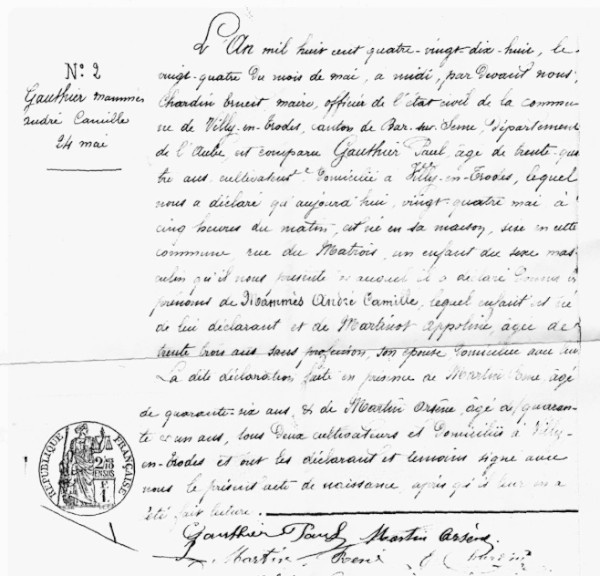 N° 2
Gauthier Mammès
André Camille
24 mai
L'An mil huit cent quatre-vingt-dix-huit, le
vingt-quatre du mois de mai, a midi, par Devant nous,
Chardin Ernest maire, officier de l'état civil de la commu
ne de Villy-en-Trodes, canton de Bar-sur-Seine, Département
de l'Aube, est comparu Gauthier Paul, âgé de trente-qua
tre ans, cultivateur Domicilié à Villy-en-Trodes, lequel
nous a déclaré qu'aujourd'hui, vingt-quatre mai à
cinq heures du matin, est né en sa maison, sise en cette
commune rue du un enfant du sexe mas
culin qu'il nous présente et auquel il a déclaré donner les
prénoms de André Camille, lequel enfant est né
de lui déclarant et de Martinot Appoline, âgée de
trente trois ans sans profession, son épouse Domiciliée avec lui
La dite déclaration faite en présence de Martin René, âgé
de quarante-six ans, & de Martin Arsène, âgé de quaran
te et un ans, tous Deux cultivateurs et Domiciliés à Villy-
en-Trodes et ont les déclarant et témoins signé avec
nous le présent acte de naissance, après qu'il leur en a
été fait lecture.
Gauthier Paul Martin Arsène
Martin René
RÉPUBLIQUE FRANÇAISE